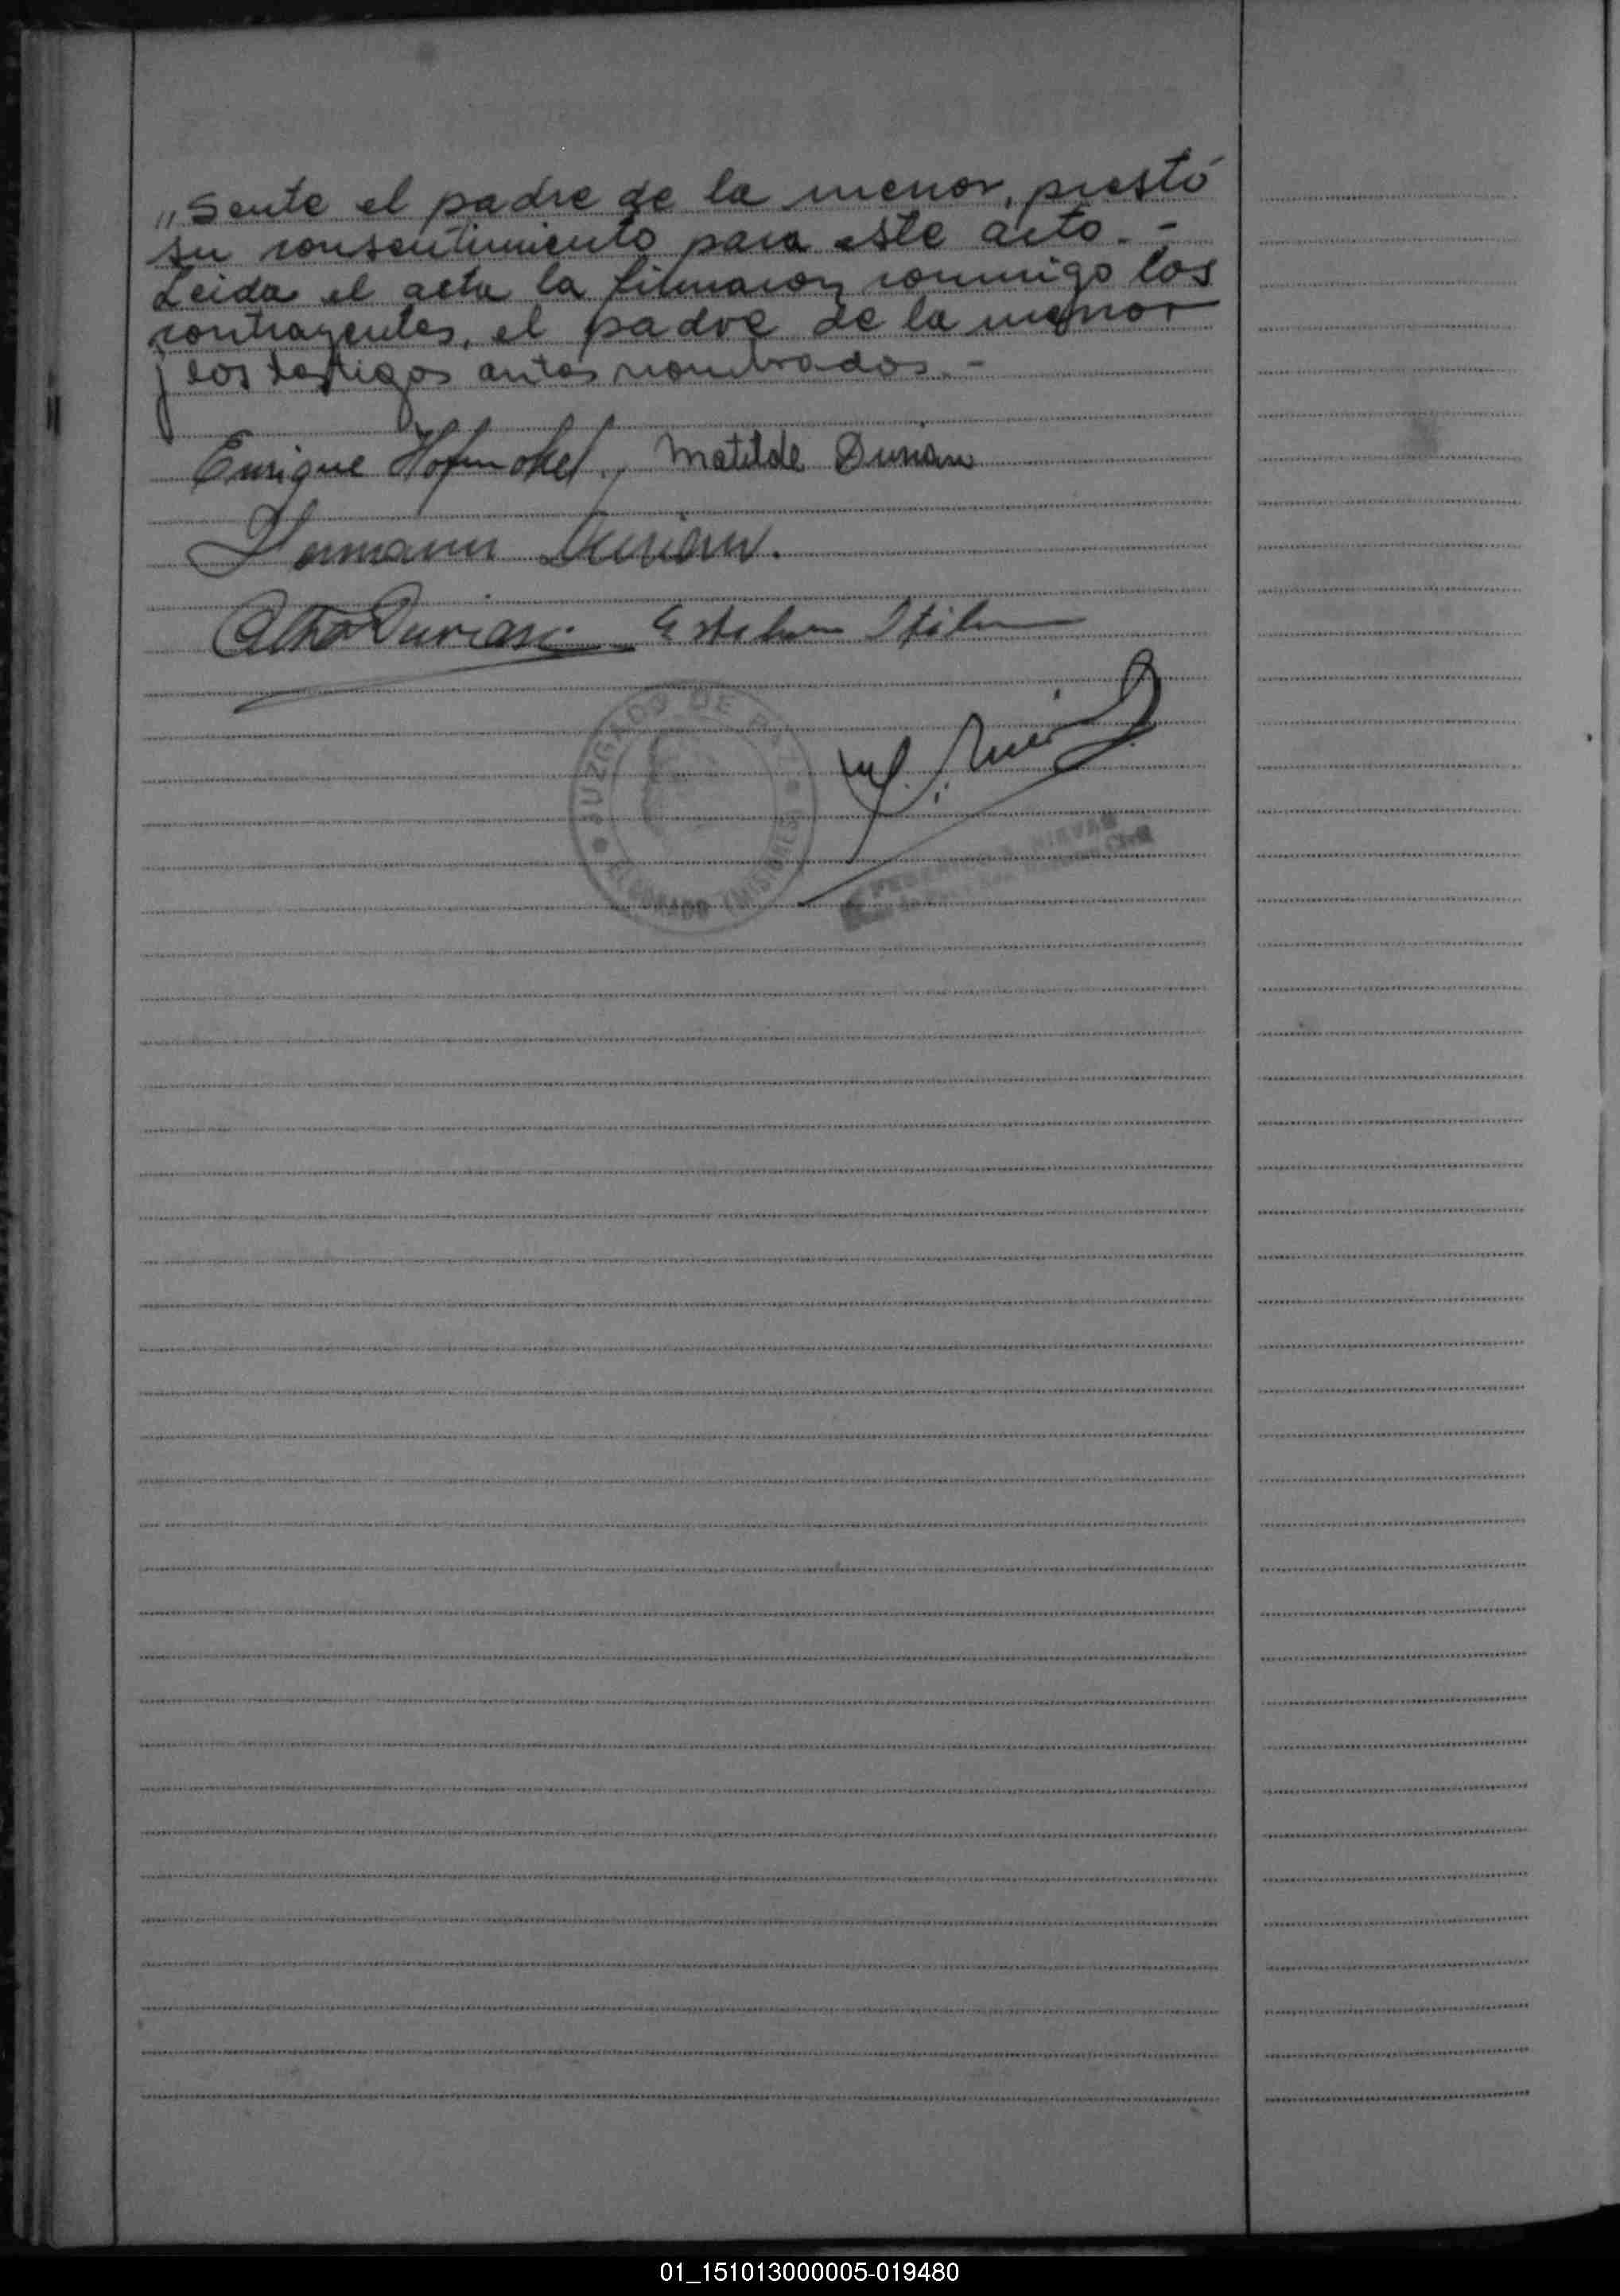 "Sente el padre de la menor, prestó
su consentimiento para este acto. -
Leida el acta la firmaron conmigo los
contrayentes, el padre de la menor
y los testigos antes nombrados. -
Enrique Matilde Durian
Hermann Durian.
Otto Durian Esteban
JUZGADO DE PAZ
ELDORADO (MISIONES)
01_151013000005-019480